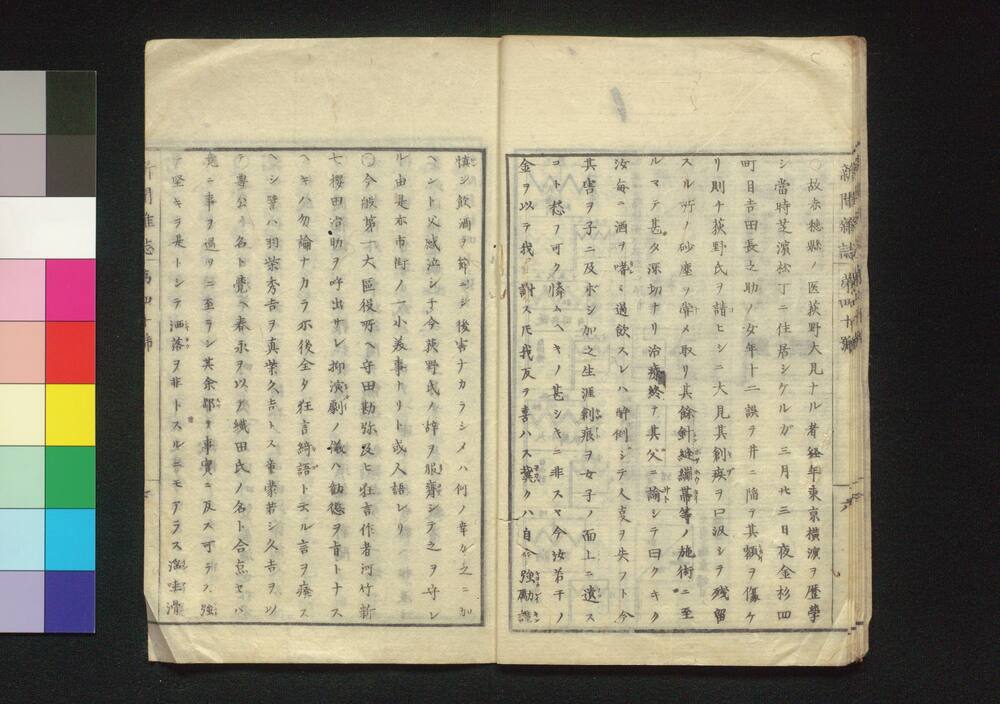 新聞雑誌 第四十號
〇故赤穂縣ノ医荻野大見ナル者経年東京横濱ヲ歴學
シ當時芝濱松丁ニ住居シケルガ三月廿三日夜金杉四
町目吉田長之助ノ女年十二誤ヲ井ニ陥ヲ其額ヲ傷ケ
リ則チ荻野氏ヲ請ヒシニ大見其創疾ヲ口汲シヲ残留
スル所ノ砂塵ヲ嘗メ取リ其餘針縫繃帯等ノ施術ニ至
ルマテ甚タ深切ナリ治療終テ其父ニ諭シテ曰クキク
汝毎ニ酒ヲ嗜ミ過飲スレハ酔倒シテ人亥ヲ失フト今
其害ヲ子ニ及ホシ加之生涯創痕ヲ女子ノ面上ニ遺ス
コト愁フ可ク憐ムヘキノ甚シキニ非スヤ今汝若干ノ
金ヲ以テ我ニ謝ス𪜈我反ヲ喜ハス冀クハ自今強勵謹
慎シ飲酒ヲ節ニシ後害ナカラシメハ何ノ幸カ之ニ加
ヘント父感泣シ于今荻野氏ノ辞ヲ服膺シテ之ヲ守レ
ル由是亦市街ノ一小美事ナリト或人語レリ
〇今般第一大區役所ヘ守田勘弥及ヒ狂言作者河竹新
七櫻田治助ヲ呼出サレ抑演劇ノ儀ハ勧懲ヲ旨トナス
ヘキハ勿論ナカラ尓後全タ狂言綺語ト云ル言ヲ癈ス
ヘシ譬ハ羽柴秀吉ヲ真柴久吉トス童蒙若シ久吉ヲ以
テ豊公ノ名ト覺ヘ春永ヲ以テ織田氏ノ名ト合点セハ
竟ニ事ヲ過ヲニ至ラン其余都テ事實ニ反ス可ラス強
テ堅キヲ是トシテ洒落ヲ非トスルニモアラス溜𠱾滑
新聞雑誌 第四十號